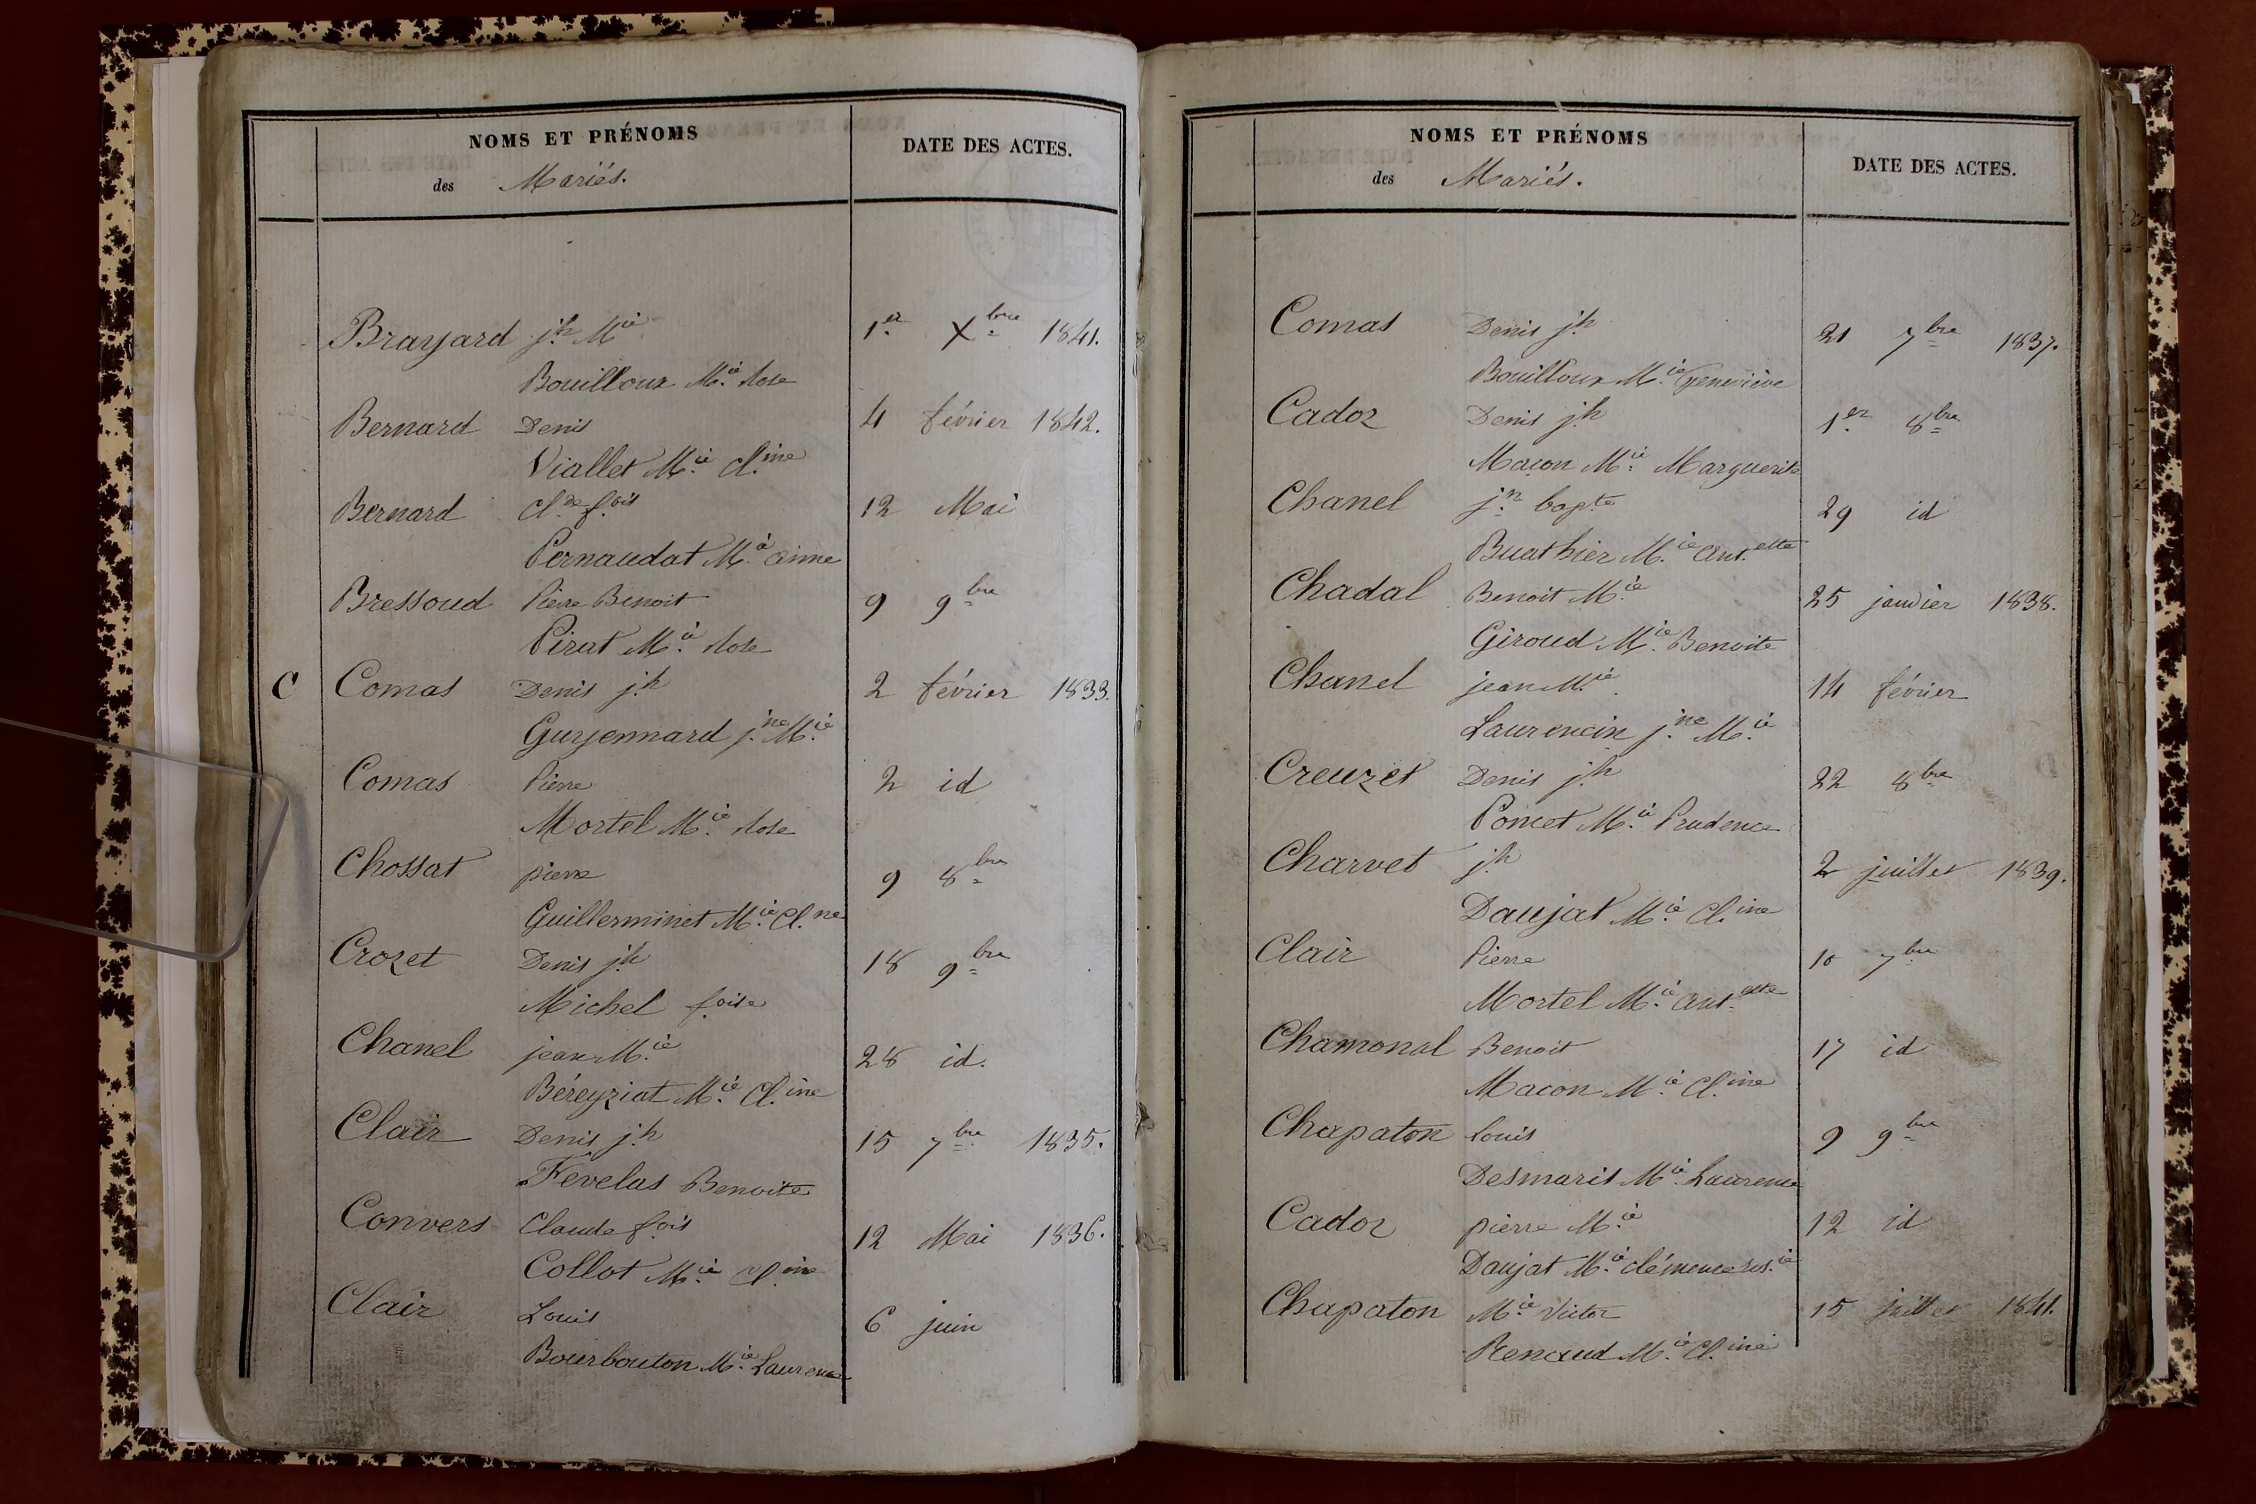 NOMS ET PRÉNOMS
des Mariés.
DATE DES ACTES.
Brayard j.h M.ie 1.er X.bre 1841.
Bouilloux M.ie Rose
Bernard Denis 4 février 1842.
Viallet M.ie Cl.ine
Bernard Cl.de f.ois 12 Mai
Pernaudat M.ie aimé
Bressoud Pierre Benoit 9 9.bre
Pirat M.ie Rose
C Comas Denis j.h 2 février 1833.
Guyennard j.ne M.ie
Comas Pierre 2 id
Mortel M.ie Rose
Chossat pierre 9 8.bre
Guillerminet M.ie Cl.ne
Crozet Denis j.h 18 9.bre
Michel f.oise
Chanel jean M.ie 28 id.
Béreyziat M.ie Cl.ine
Clair Denis j.h 15 7.bre 1835.
Fevelas Benoite
Convers Claude f.ois 12 Mai 1836.
Collot M.ie Cl.ine
Clair Louis 6 juin
Bourbouton M.ie Laurence
NOMS ET PRÉNOMS
des Mariés.
DATE DES ACTES.
Comas Denis j.h 21 7.bre 1837.
Bouilloux M.ie Geneviève
Cadoz Denis j.h 1.er 8.bre
Maçon M.ie Marguerite
Chanel j.n bap.te 29 id
Buathier M.ie ant.ette
Chadal Benoit M.ie 25 janvier 1838.
Giroud M.ie Benoite
Chanel jean M.ie 14 février
Laurencin j.ne M.ie
Creuzet Denis j.h 22 8.bre
Poncet M.ie Prudence
Charvet j.h 2 juillet 1839.
Daujat M.ie Cl.ine
Clair Pierre 10 7.bre
Mortel M.ie ant.ette
Chamonal Benoit 17 id
Macon M.ie Cl.ine
Chapaton louis 9 9.bre
Desmaris M.ie Laurence
Cadoz pierre M.ie 12 id
Daujat M.ie clémence
Chapaton M.ie Victor 15 juillet 1841.
Renaud M.ie Cl.ine